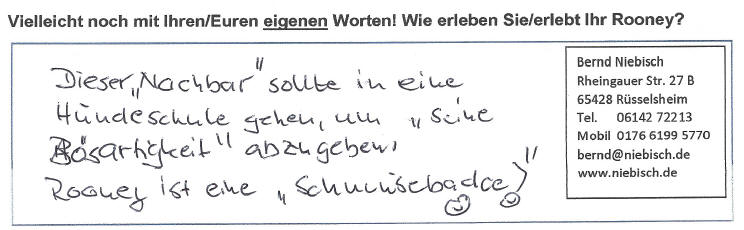 Vielleicht noch mit Ihren/Euren eigenen Worten! Wie erleben Sie/erlebt Ihr Rooney?
Dieser „Nachbar" sollte in eine
Hundeschule gehen, um „seine
Bösartigkeit" abzugeben,
Rooney ist eine „Schmusebacke"
Bernd Niebisch
Rheingauer Str. 27 B
65428 Rüsselsheim
Tel. 06142 72213
Mobil 0176 6199 5770
bernd@niebisch.de
www.niebisch.de